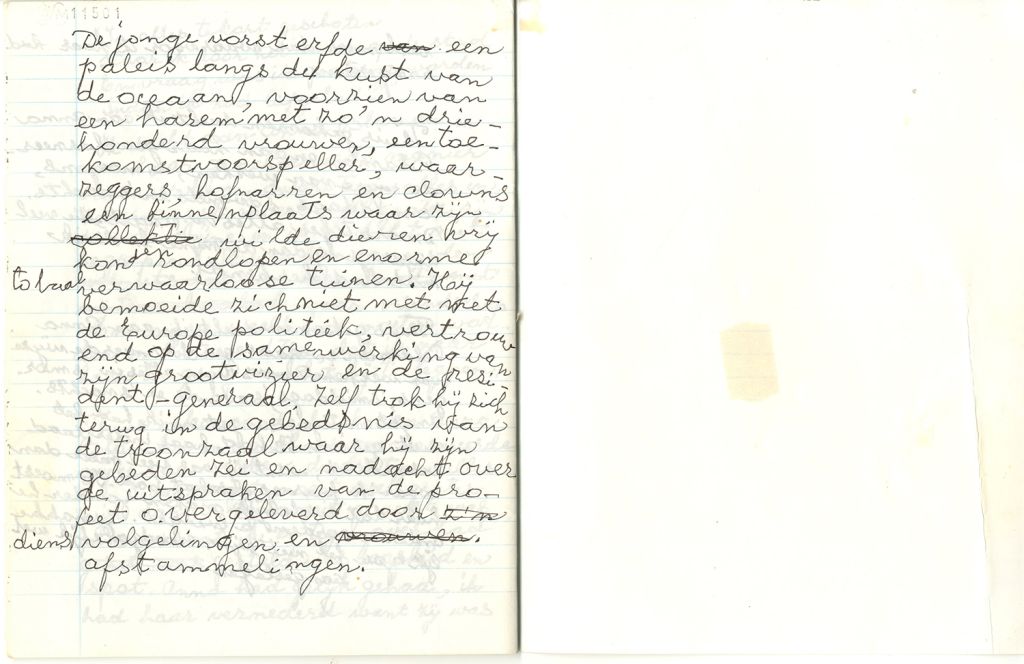 M11501
De jonge vorst erfde van een
paleis langs de kust van
de oceaan, voorzien van
een harem met zo'n drie-
honderd vrouwen, een toe-
komstvoorspeller, waar-
zeggers, hofnarren en clowns
een binnenplaats waar zijn
collektie wilde dieren vrij
konden rondlopen en enorme
totaal verwaarloosde tuinen. Hij
bemoeide zich niet met met
de Europe politiek, vertrouw
end op de samenwerking van
zijn grootvizier en de resi
dent-generaal, zelf trok hij zich
terug in de gebednis van
de troonzaal waar hij zijn
gebeden zei en nadacht over
de uitspraken van de pro-
feet overgeleverd door z'n
diens volgelingen en vrouwen.
afstammelingen.
had haar vernederd want zij was